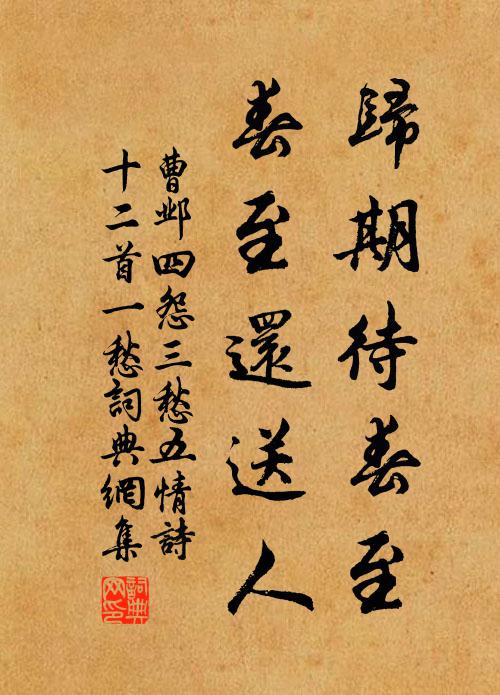 歸期待春至
春至還送人
曹鄴四怨三愁五情詩
十二首一愁詞典網集
詞典
网印